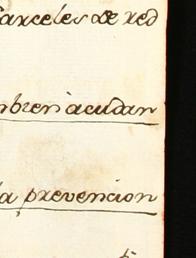 arceles de red
nbren acudan
la prevencion